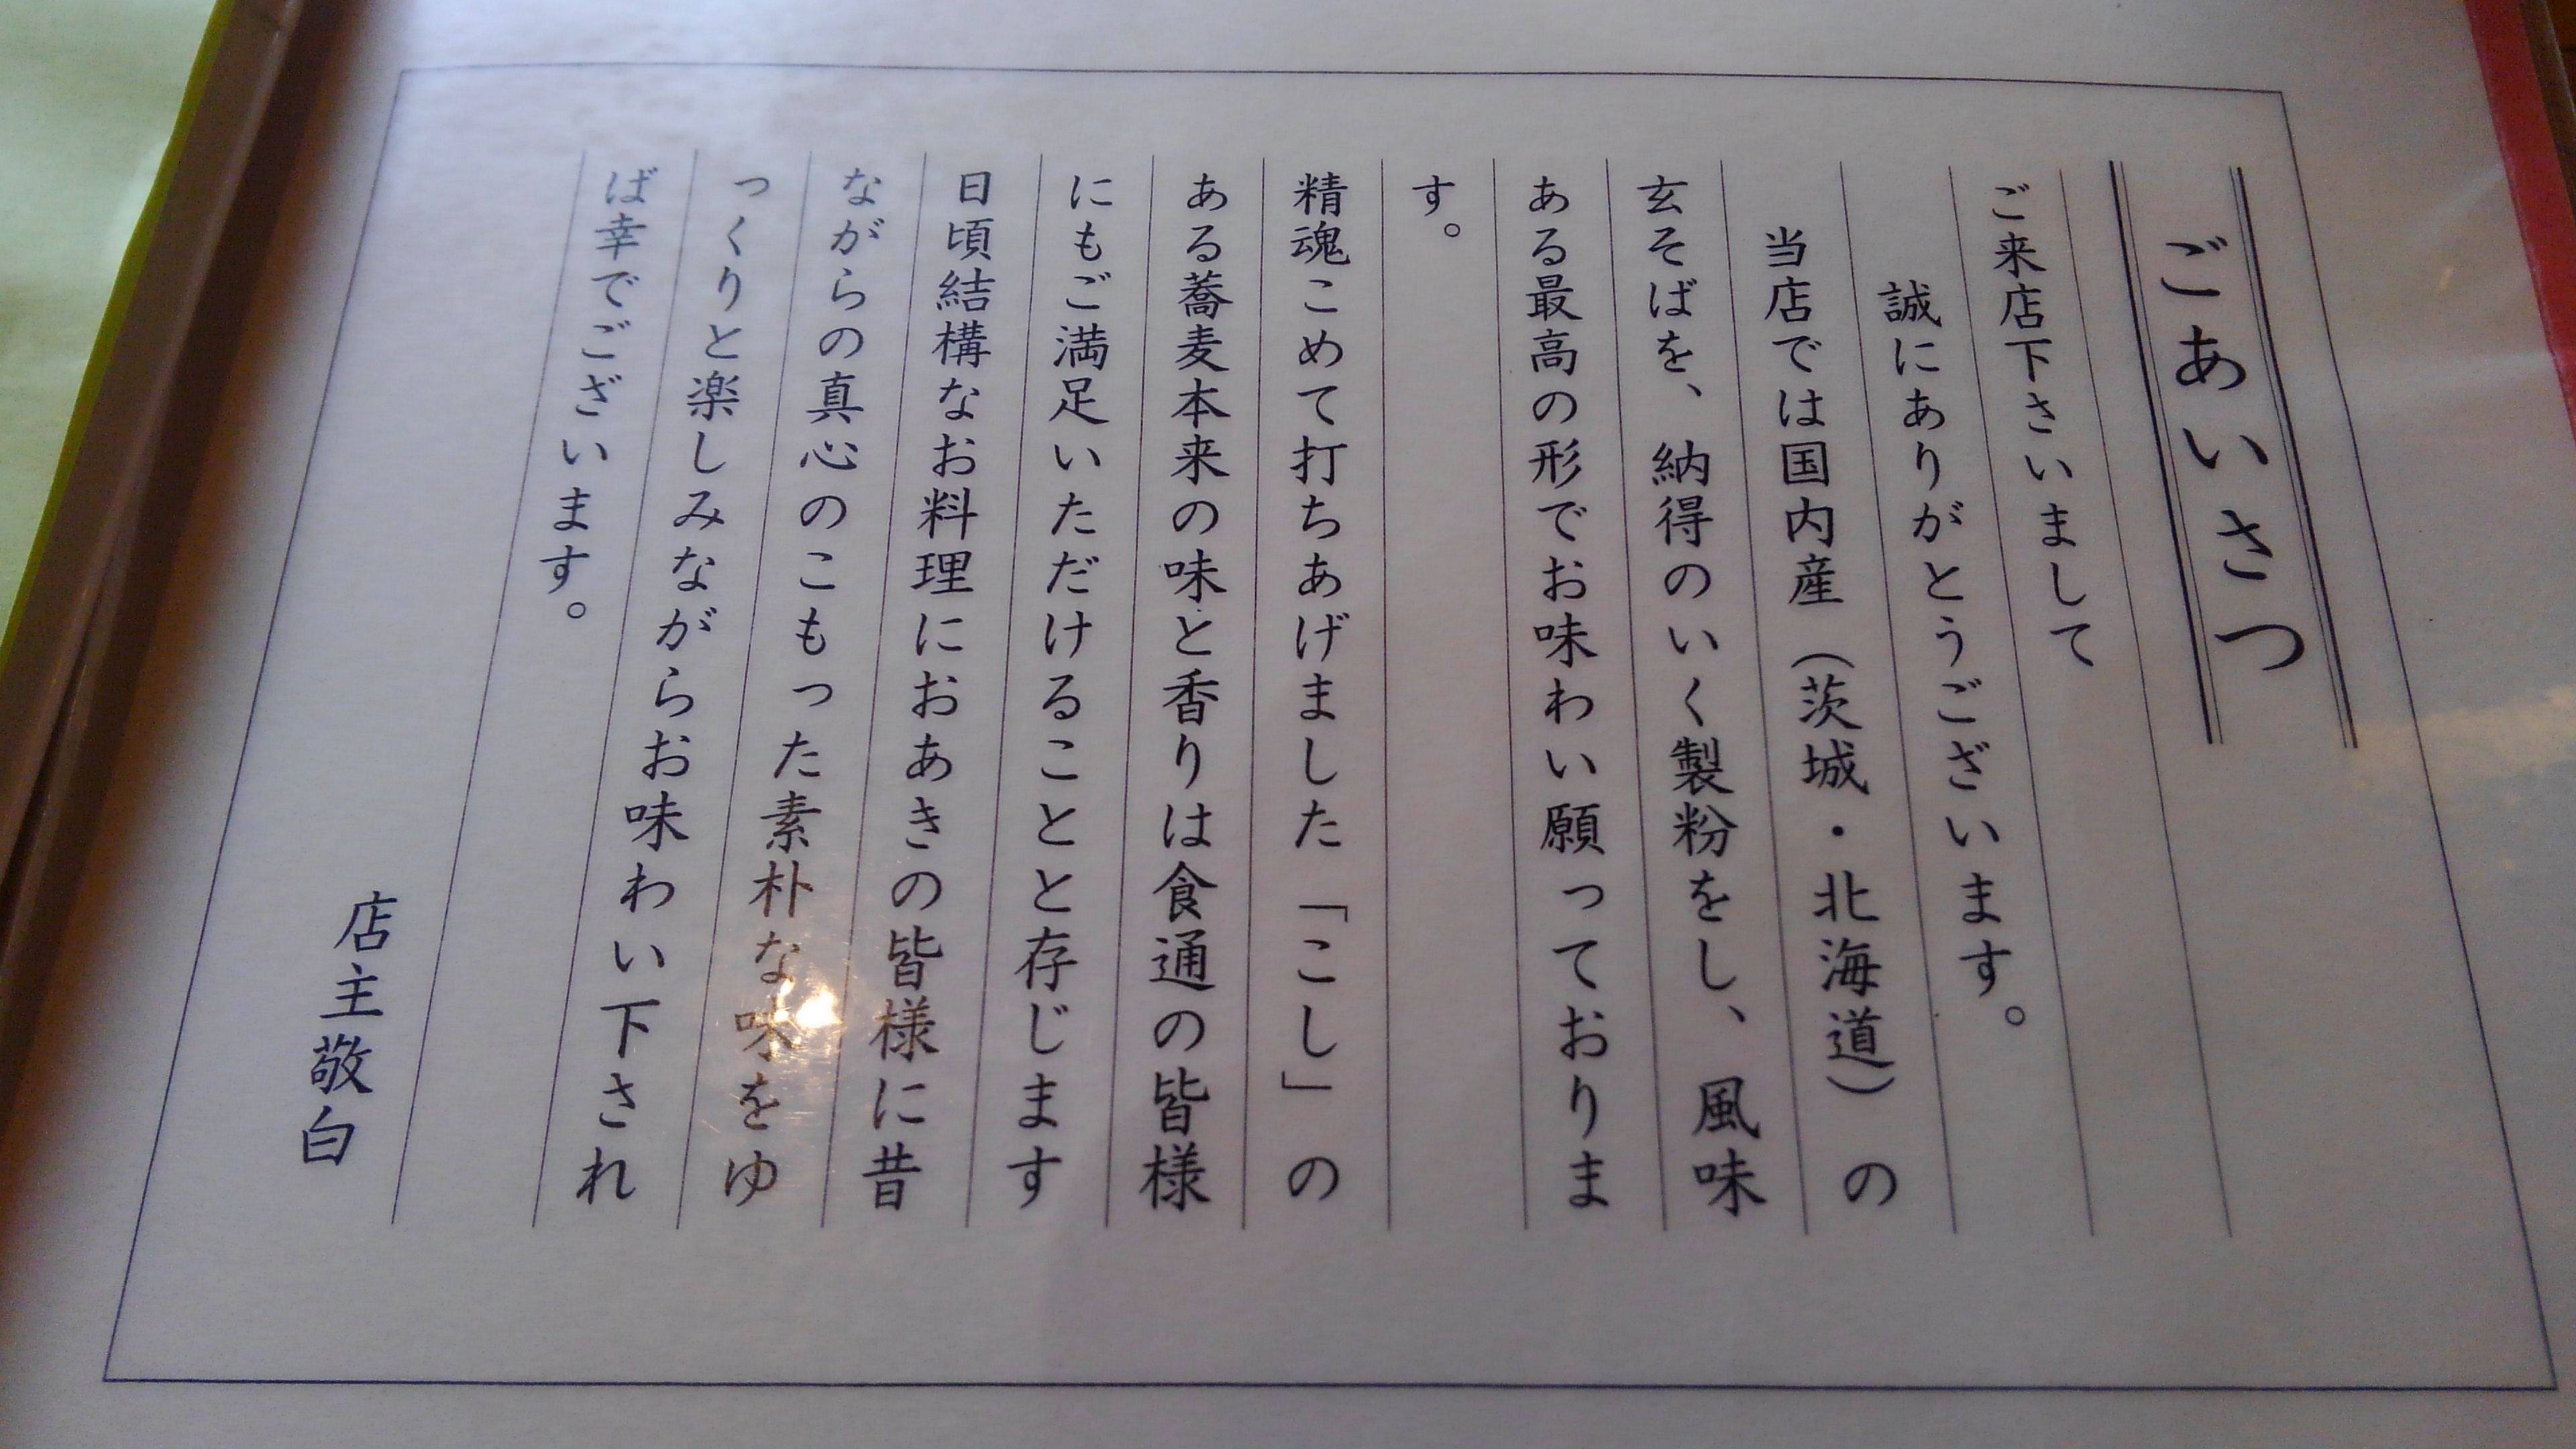 ごあいさつ
ご来店下さいまして
誠にありがとうございます。
当店では国内産（茨城・北海道）の
玄そばを、納得のいく製粉をし、風味
ある最高の形でお味わい願っておりま
す。
精魂こめて打ちあげました「こし」の
ある蕎麦本来の味と香りは食通の皆様
にもご満足いただけることと存じます
日頃結構なお料理におあきの皆様に昔
ながらの真心のこもった素朴な味をゆ
っくりと楽しみながらお味わい下され
ば幸でございます。
店主敬白